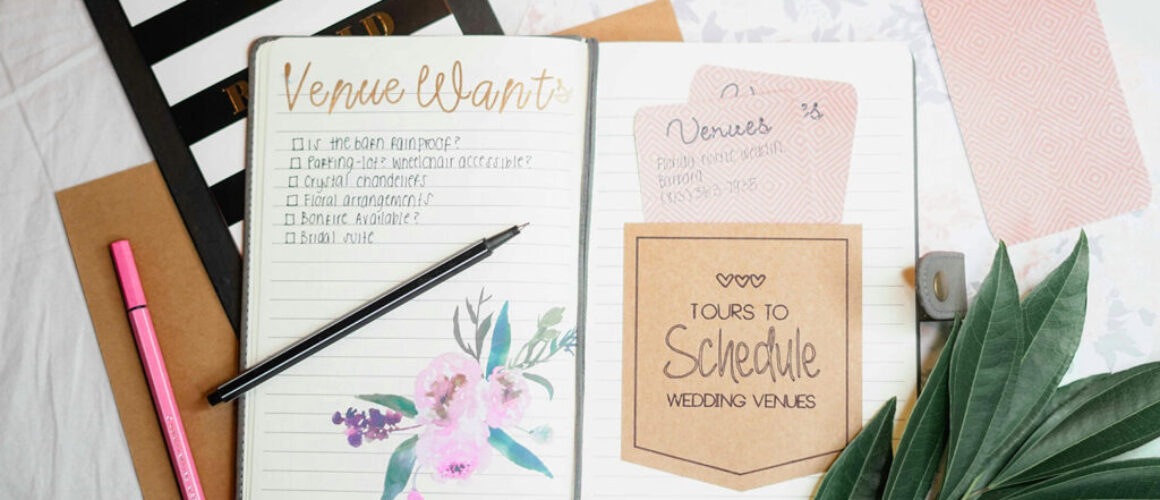 Venue Wants
Is the barn rainproof?
Parking-lot? Wheelchair accessible?
Crystal chandeliers
Floral arrangements
Bonfire Available?
Bridal suite
Venues
's
TOURS TO
Schedule
WEDDING VENUES